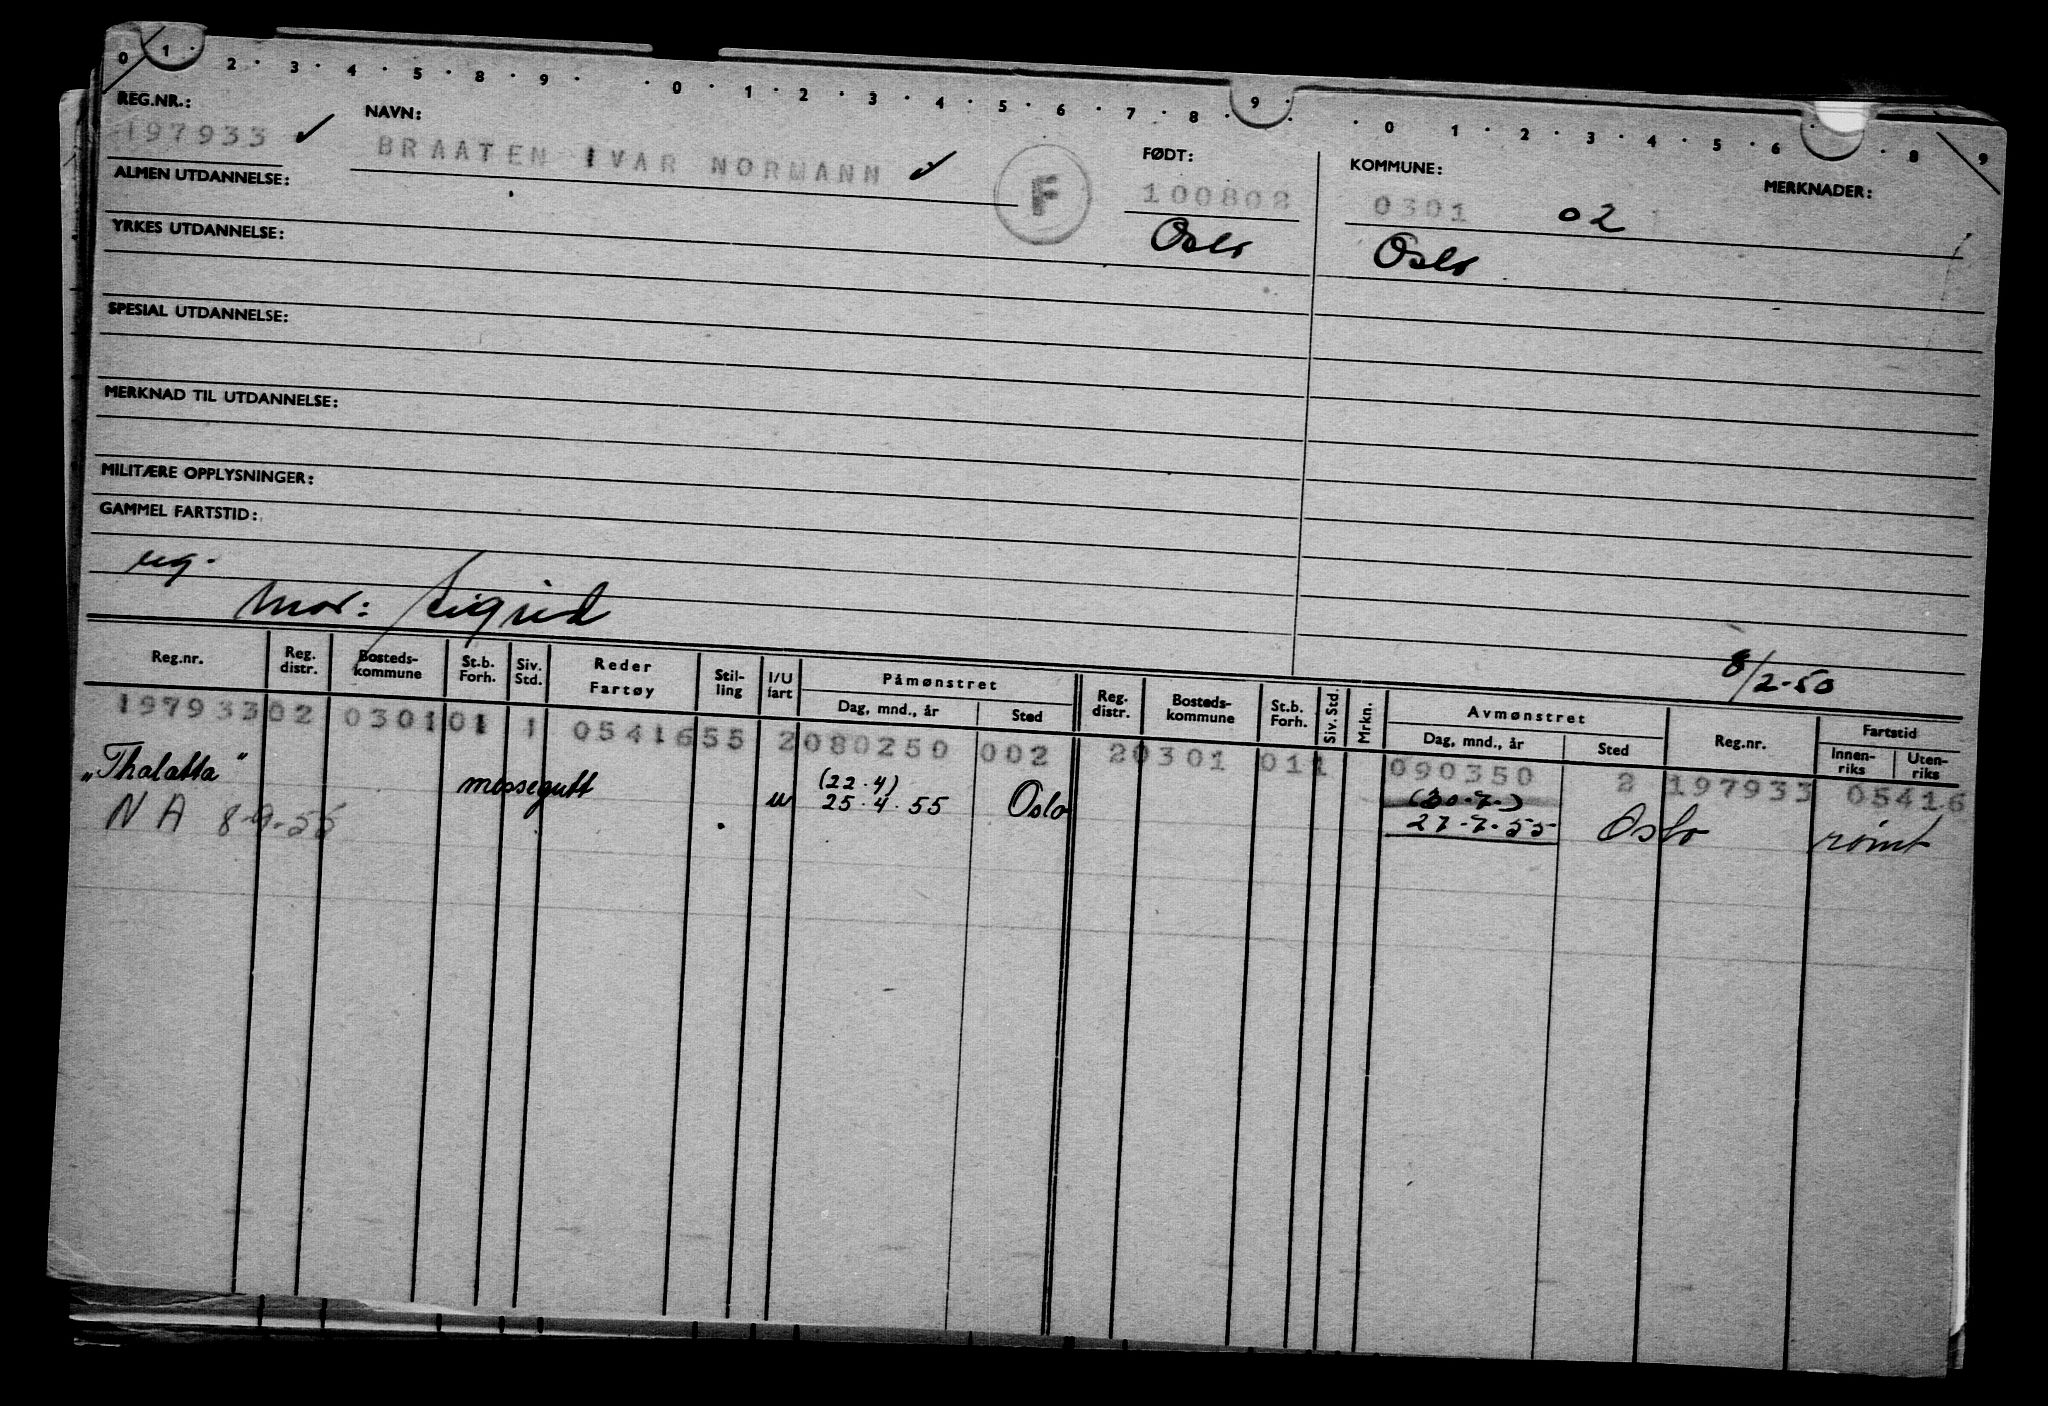 0 1 · 2 · 3 · 4 · 5 · 8 · 9 · · 0 · 1 · 2 · 3 · 4 · 5 · 6 · 7 · 8 · 9 · · 0 · 1 · 2 · 3 · 4 · 5 · 6 · · 8 · 9
REG.NR.: NAVN: FØDT: KOMMUNE: MERKNADER:
197933 ✓ BRAATEN IVAR NORMANN ✓ F 100802 0301 02
ALMEN UTDANNELSE: Oslo Oslo
YRKES UTDANNELSE:
SPESIAL UTDANNELSE:
MERKNAD TIL UTDANNELSE:
MILITÆRE OPPLYSNINGER:
GAMMEL FARTSTID:
ug.
Mor: Sigrid
8/2-50
Reg.nr. Reg. distr. Bosteds-kommune St.b. Forh. Siv. Std. Reder Fartøy Stil-ling I/U fart Påmønstret Dag, mnd., år Sted Reg. distr. Bosteds-kommune St.b. Forh. Siv. Std. Mrkn. Avmønstret Dag, mnd., år Sted Reg.nr. Fartstid Innen-riks Uten-riks
197933 02 0301 01 1 054 16 55 2 080250 002 2 0301 011 090350 2 197933 05416
„Thalatta" messegutt u (22.4) 25.4.55 Oslo (20.7.) 27.7.55 Oslo rømt
NA 8-9-55